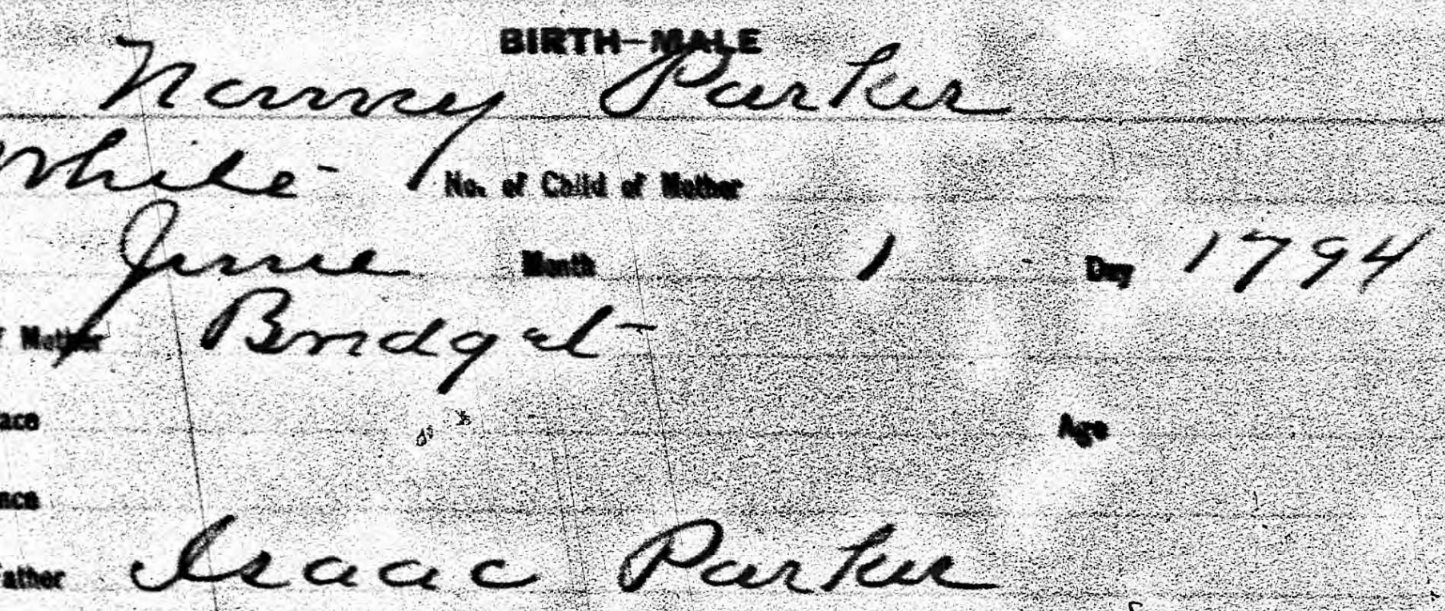 BIRTH-MALE
Nancy Parker
White No. of Child of Mother
June Month 1 Day 1794
Mother Bridget
Age
Isaac Parker